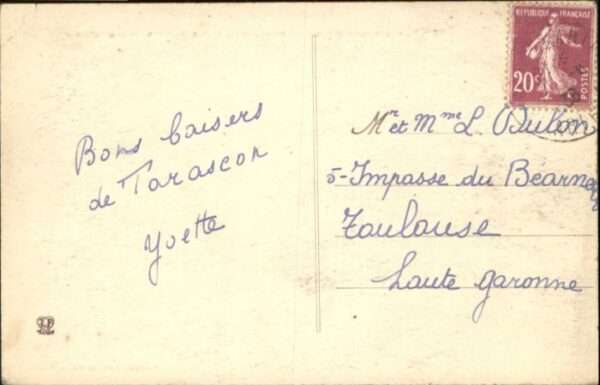 Bons baisers
de Tarascon
Yvette
REPUBLIQUE FRANÇAISE
20c
POSTES
Mr et Mme L. Dulon
5-Impasse du Béarn
Toulouse
Haute Garonne